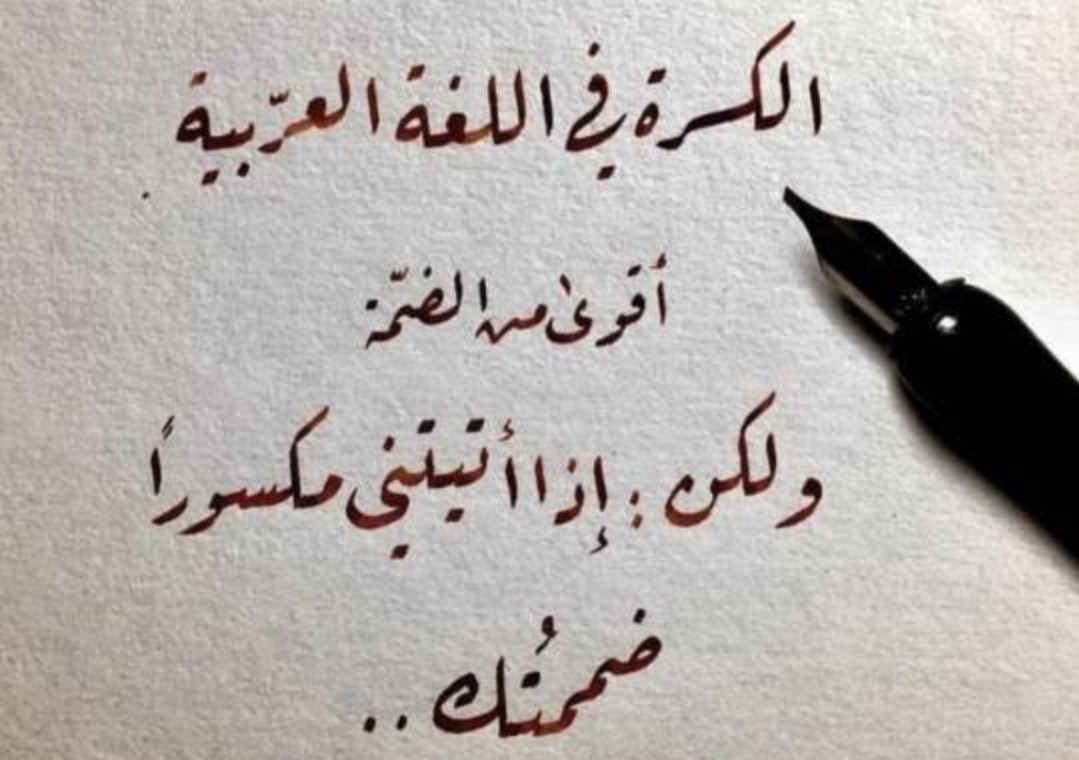 الكسرة في اللغة العرّبية
أقوى من الضمّة
ولكن : إذا أتيتني مكسوراً
ضممتُك ..